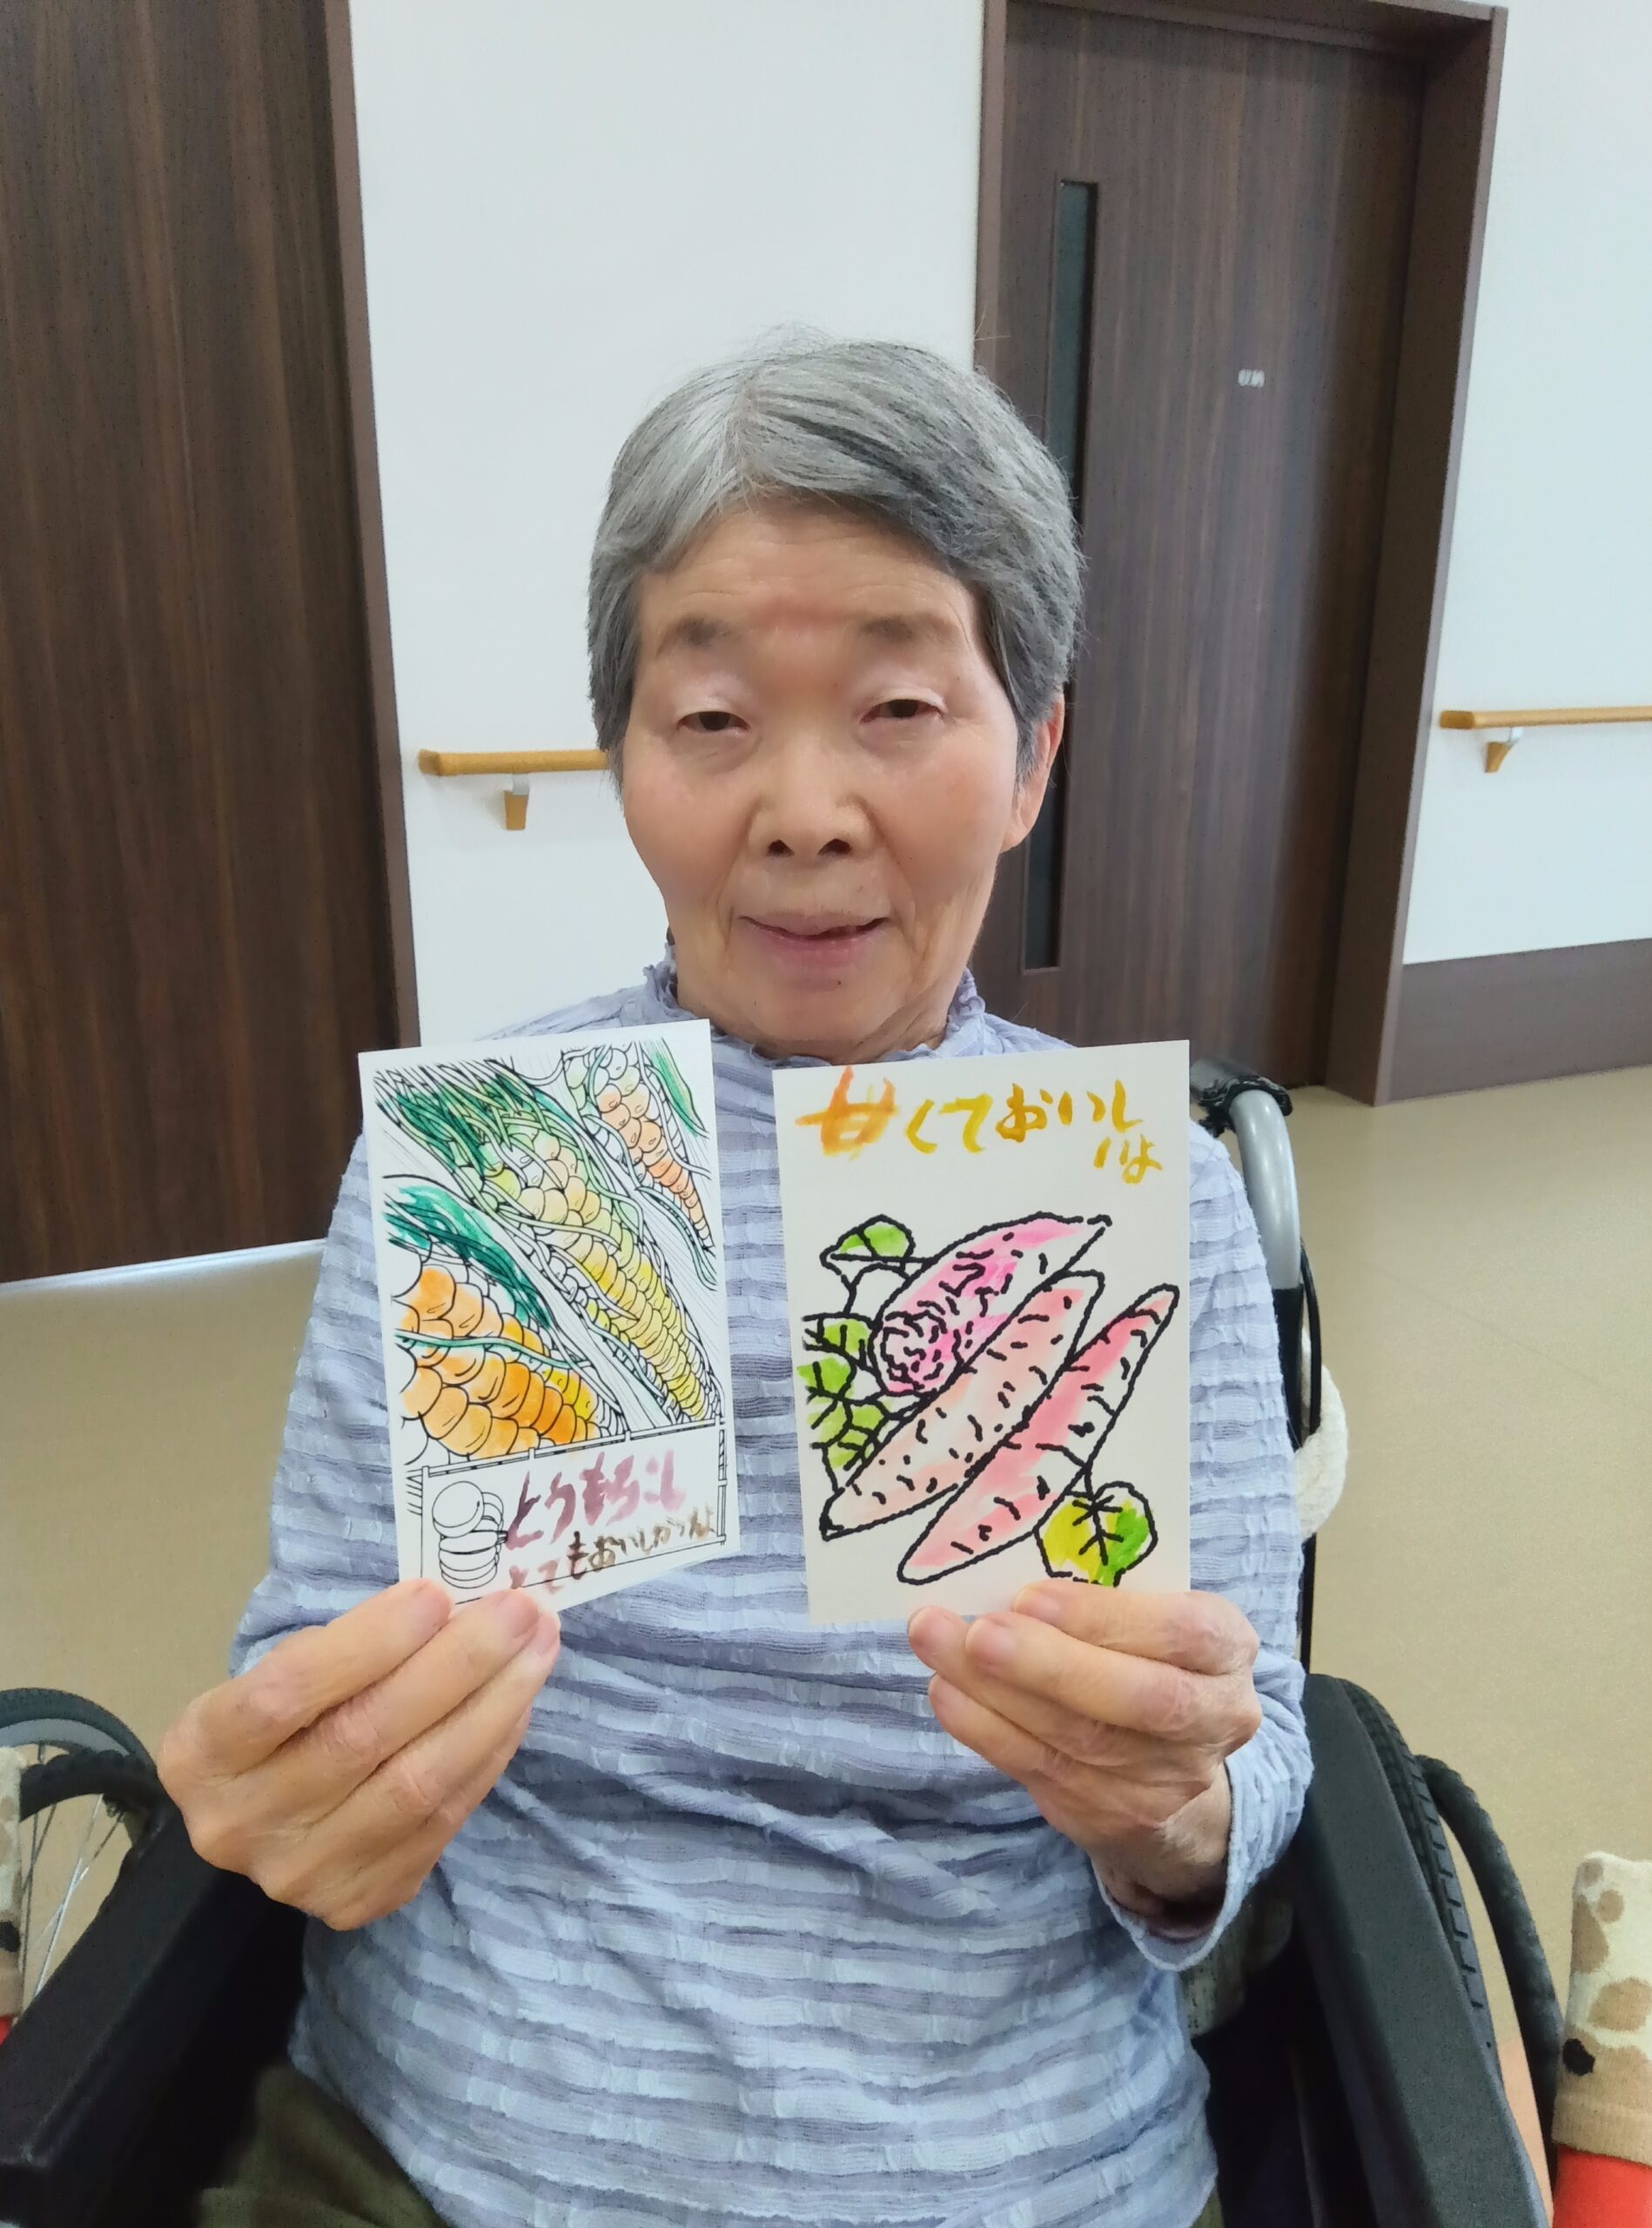 とうもろこし
とてもおいしかったよ
甘くておいし
いよ